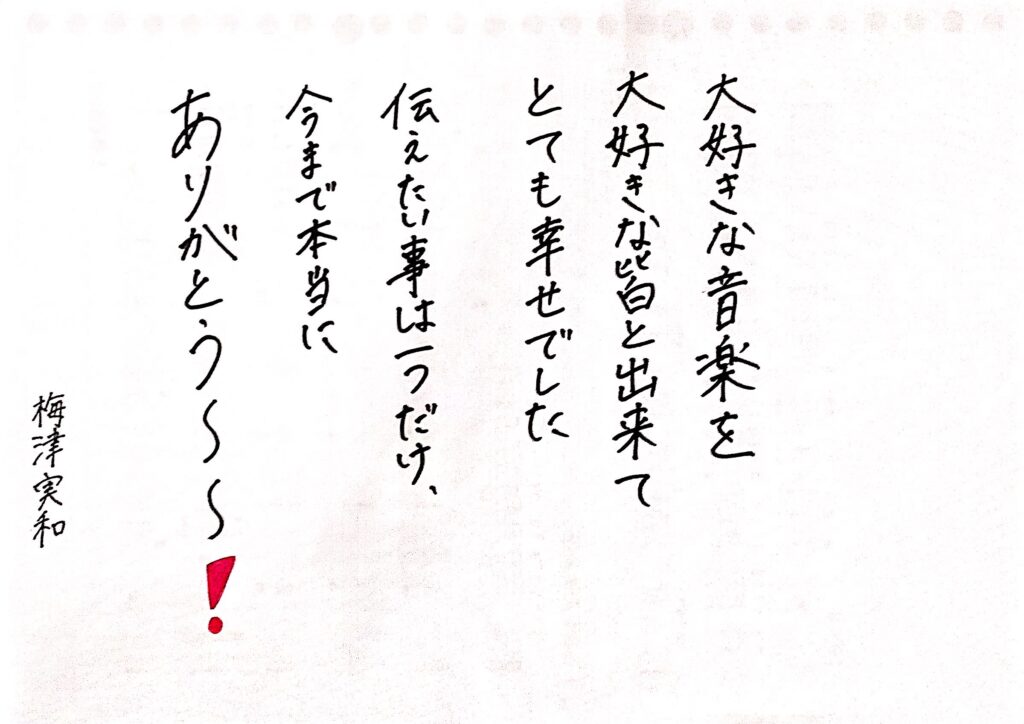 大好きな音楽を
大好きな皆と出来て
とても幸せでした
伝えたい事は一つだけ、
今まで本当に
ありがとう〜〜！
梅津実和